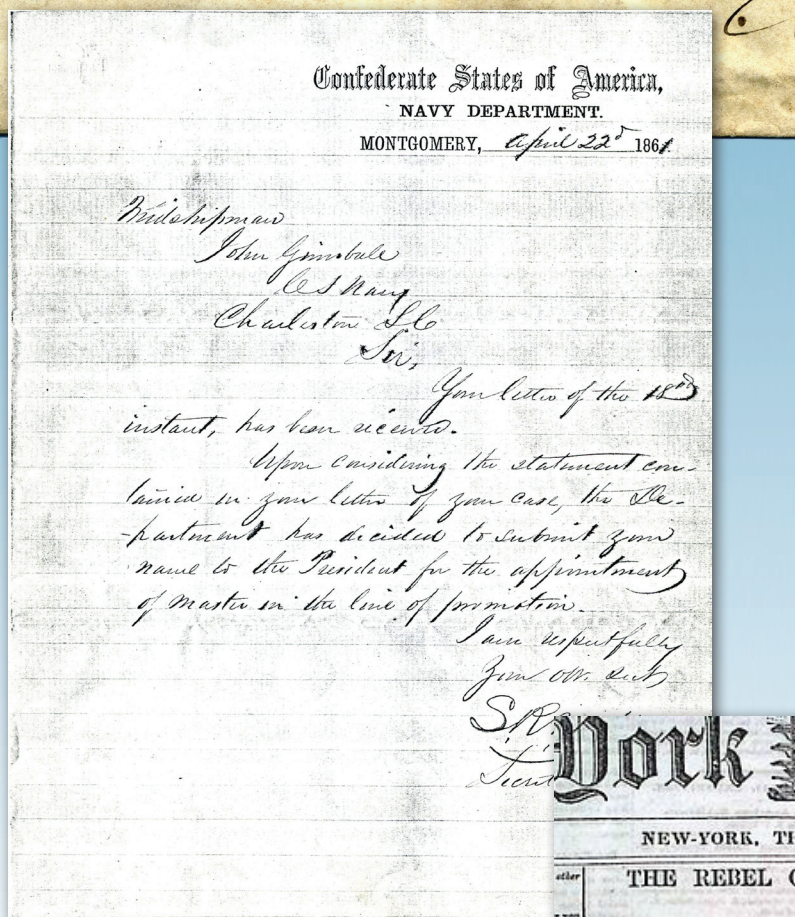 Confederate States of America,
NAVY DEPARTMENT.
MONTGOMERY, April 22d 1861.
Midshipman
John Grimball
C S Navy
Charleston S C
Sir,
Your letter of the 18th
instant, has been received.
Upon considering the statement con-
tained in your letter of your case, the De-
-partment has decided to submit your
name to the President for the appointment
of Master in the line of promotion.
I am respectfully
Your obt. Servt
S. R.
York
NEW-YORK,
THE REBEL